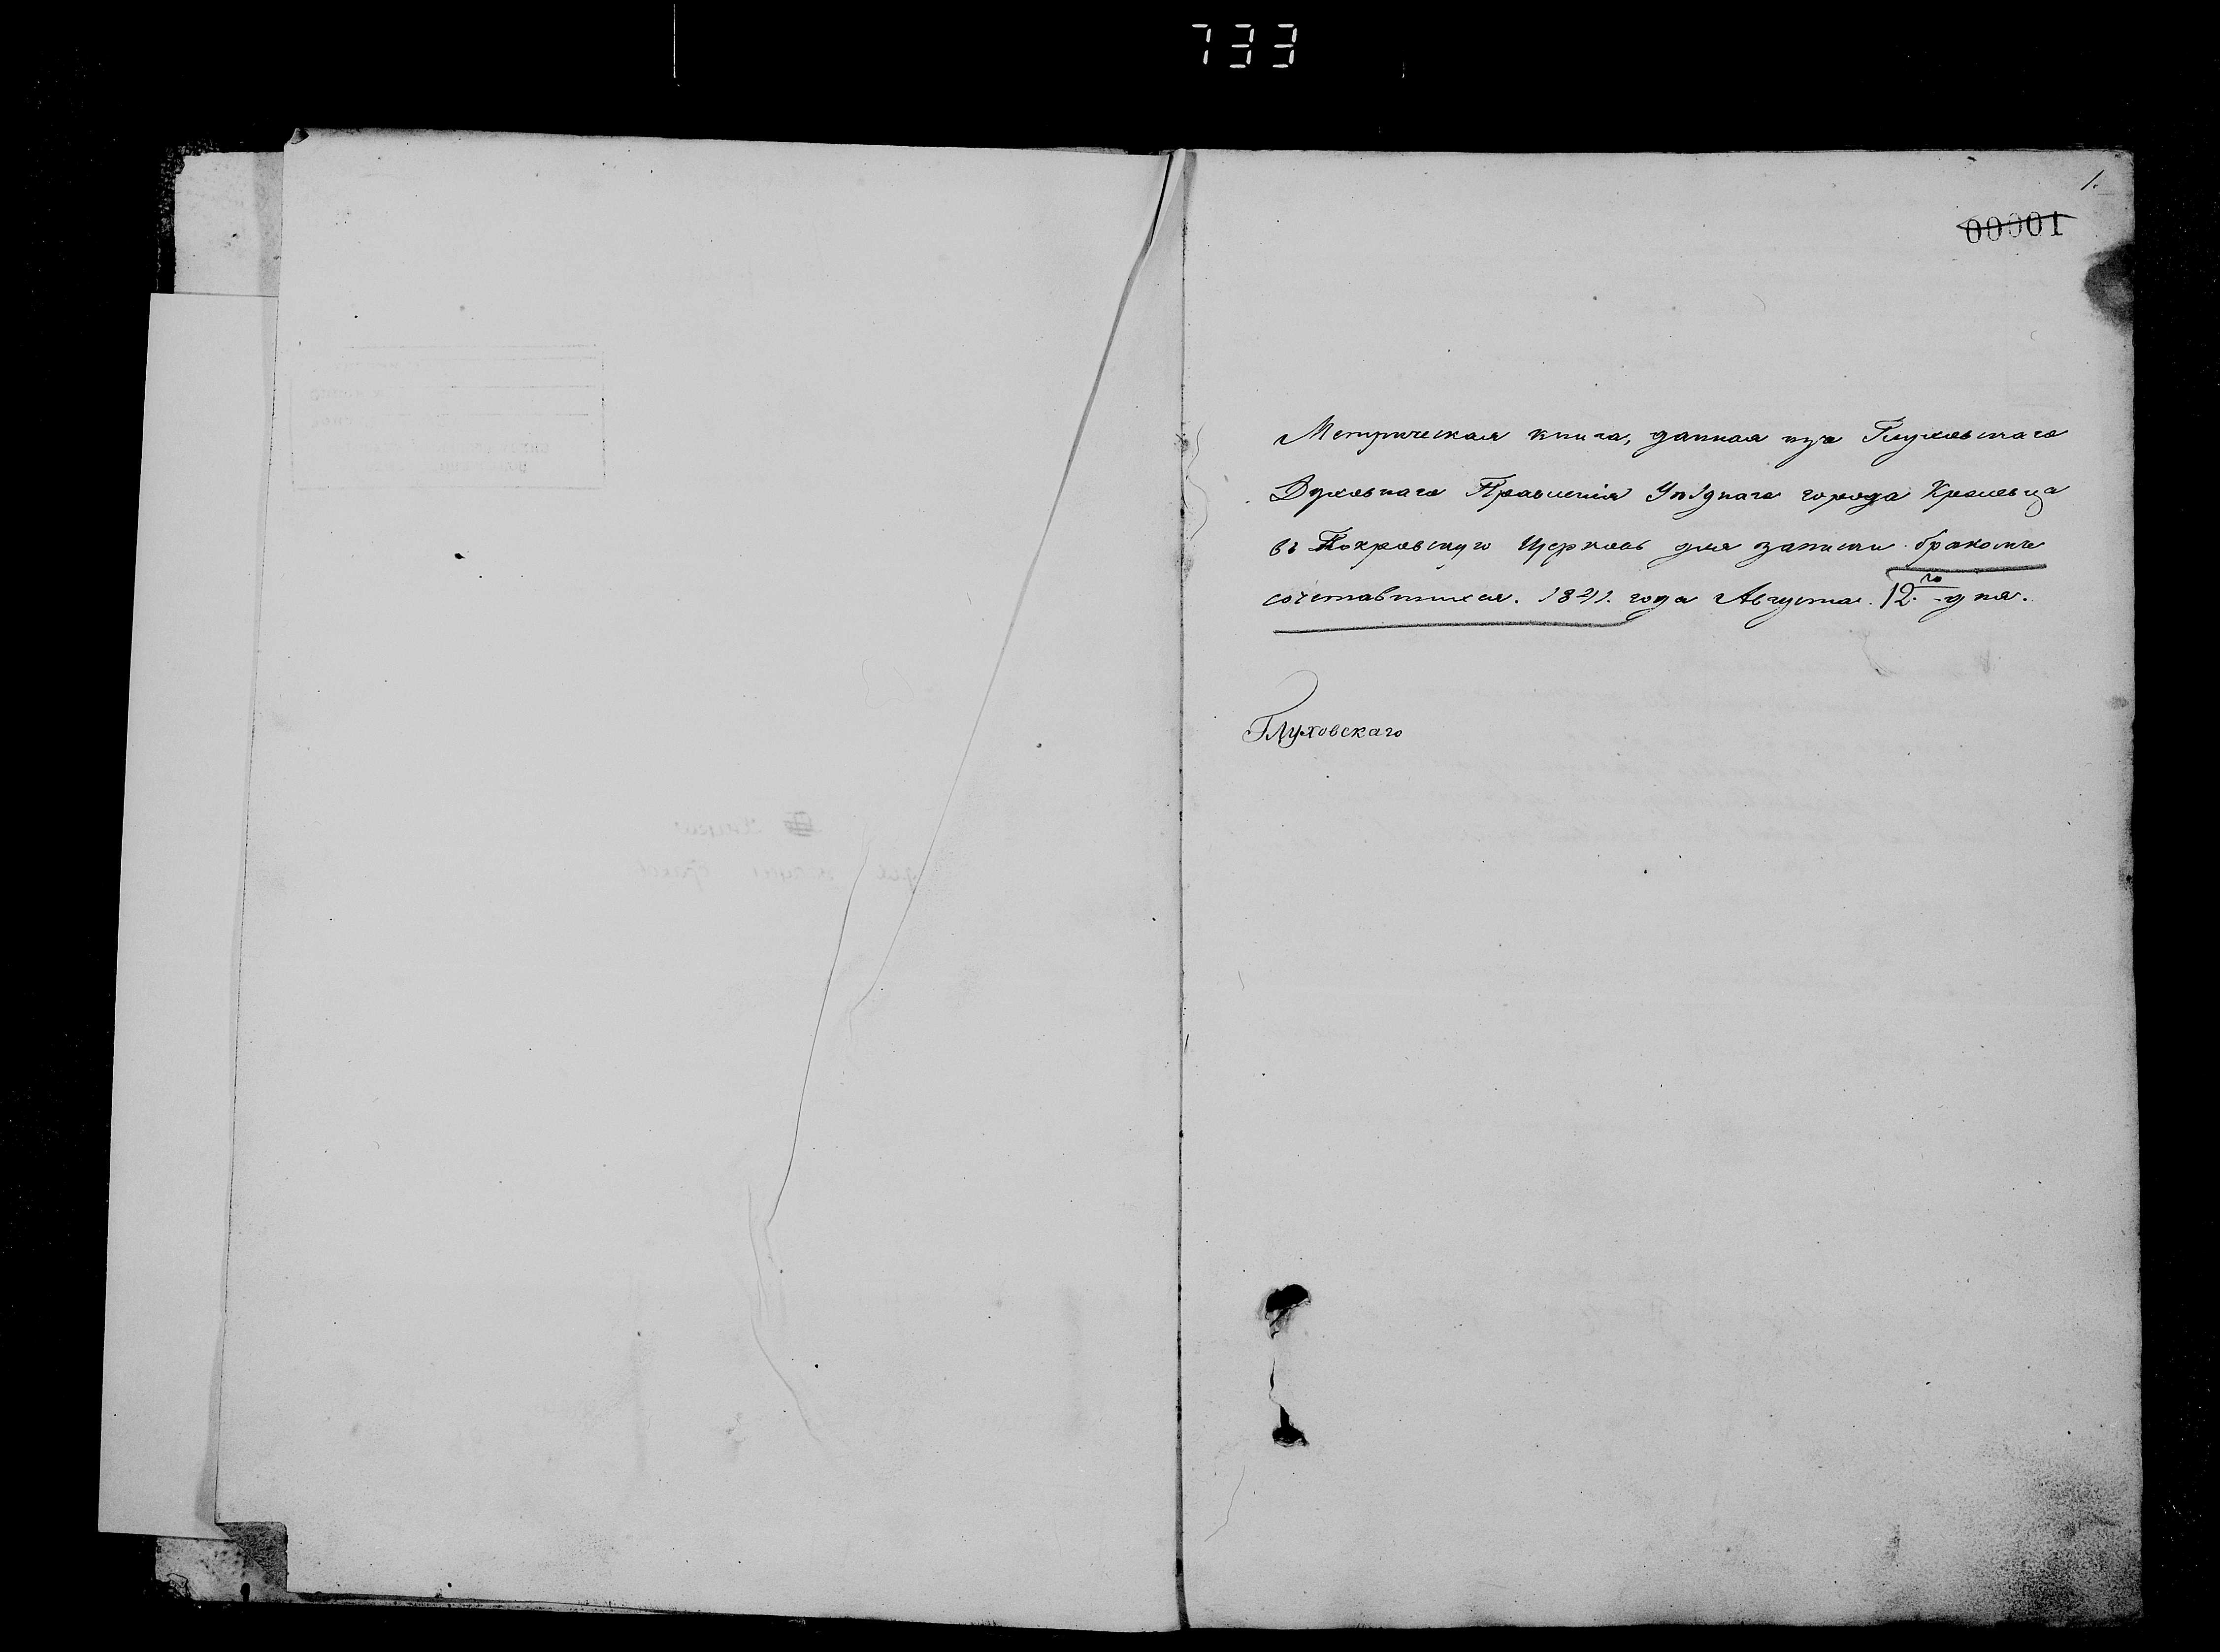 733
1.
00001
Метрическая книга, данная изъ Глуховскаго
Духовнаго Правленія Уѣзднаго города Кролевца
въ Покровскую Церковь для записки бракомъ
сочетавшихся. 1821. года Августа. 12го дня.
Глуховскаго